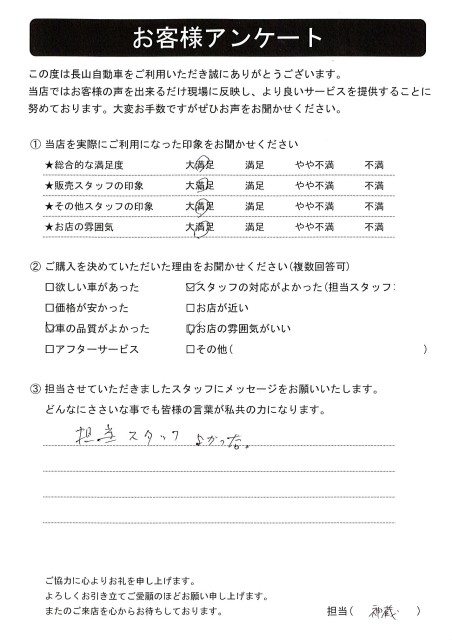 お客様アンケート
この度は長山自動車をご利用いただき誠にありがとうございます。
当店ではお客様の声を出来るだけ現場に反映し、より良いサービスを提供することに
努めております。大変お手数ですがぜひお声をお聞かせください。
① 当店を実際にご利用になった印象をお聞かせください
★総合的な満足度 大満足 満足 やや不満 不満
★販売スタッフの印象 大満足 満足 やや不満 不満
★その他スタッフの印象 大満足 満足 やや不満 不満
★お店の雰囲気 大満足 満足 やや不満 不満
② ご購入を決めていただいた理由をお聞かせください(複数回答可)
□欲しい車があった ☑スタッフの対応がよかった(担当スタッフ:
□価格が安かった □お店が近い
☑車の品質がよかった ☑お店の雰囲気がいい
□アフターサービス □その他( )
③ 担当させていただきましたスタッフにメッセージをお願いいたします。
どんなにささいな事でも皆様の言葉が私共の力になります。
担当スタッフ よかった。
ご協力に心よりお礼を申し上げます。
よろしくお引き立てご愛顧のほどお願い申し上げます。
またのご来店を心からお待ちしております。
担当( 神蔵 )